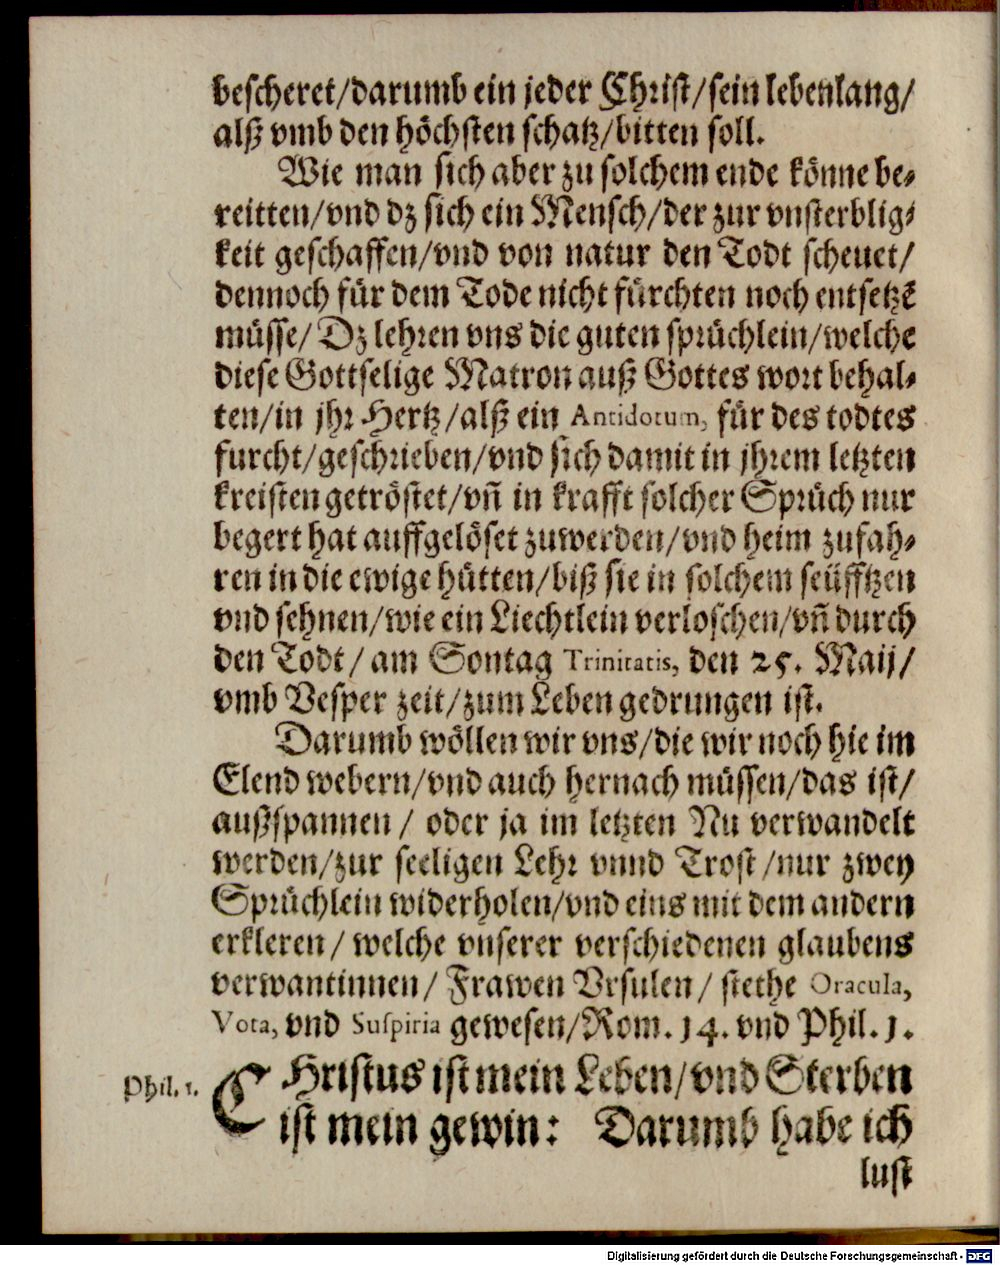 bescheret/darumb ein jeder Christ/sein lebenlang/
alß vmb den höchsten schatz/bitten soll.
Wie man sich aber zu solchem ende könne be-
reitten/vnd dz sich ein Mensch/der zur vnsterblig-
keit geschaffen/vnd von natur den Todt scheuet/
dennoch für dem Tode nicht fürchten noch entsetzẽ
müsse/ Dz lehren vns die guten sprüchlein/welche
diese Gottselige Matron auß Gottes wort behal-
ten/in jhr Hertz/alß ein Antidotum, für des todtes
furcht/geschrieben/vnd sich damit in jhrem letzten
kreisten getröstet/vñ in krafft solcher Sprüch nur
begert hat auffgelöset zuwerden/vnd heim zufah-
ren in die ewige hütten/biß sie in solchem seüfftzen
vnd sehnen/wie ein Liechtlein verloschen/vñ durch
den Todt/ am Sontag Trinitatis, den 25. Maij/
vmb Vesper zeit/zum Leben gedrungen ist.
Darumb wöllen wir vns/die wir noch hie im
Elend webern/vnd auch hernach müssen/das ist/
außspannen/ oder ja im letzten Nu verwandelt
werden/zur seeligen Lehr vnnd Trost/nur zwey
Sprüchlein widerholen/vnd eins mit dem andern
erkleren/ welche vnserer verschiedenen glaubens
verwantinnen/ Frawen Vrsulen/ stethe Oracula,
Vota, vnd Suspiria gewesen/Rom. 14. vnd Phil. 1.
Phil. 1.
CHristus ist mein Leben/vnd Sterben
ist mein gewin: Darumb habe ich
lust
Digitalisierung gefördert durch die Deutsche Forschungsgemeinschaft - DFG